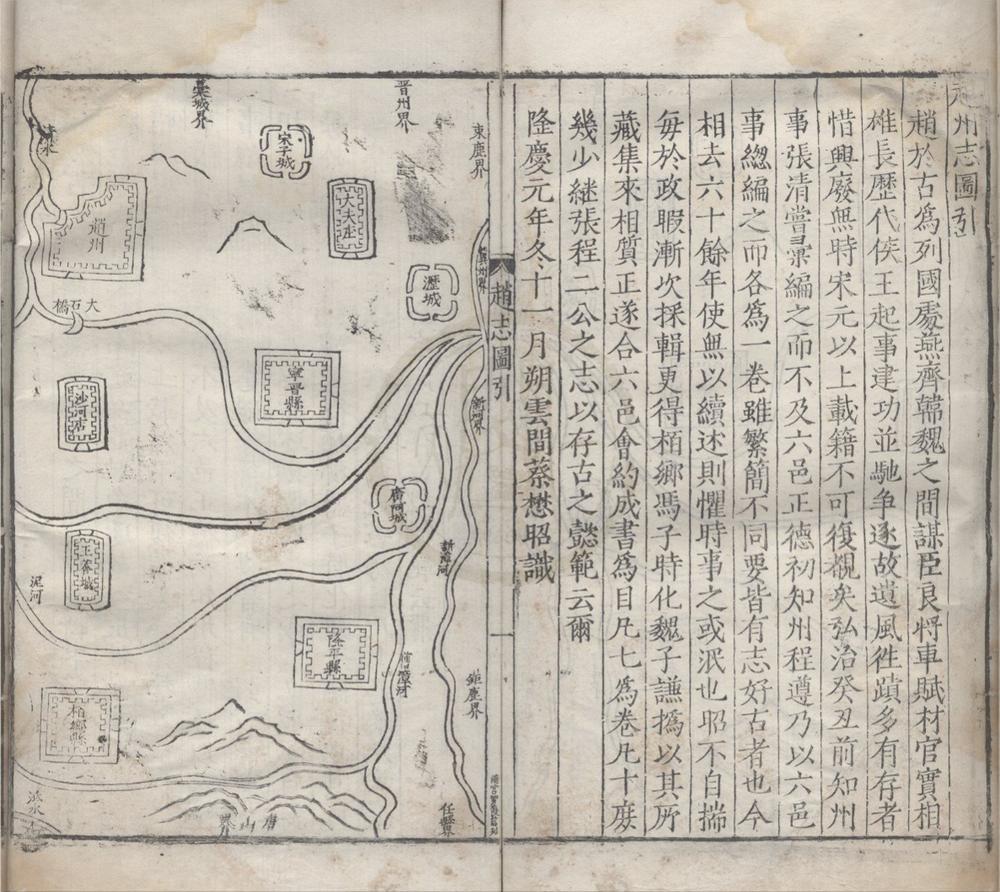 趙州志圖引
趙於古為列國處燕齊韓魏之間謀臣良將車賦材官實相
雄長歷代侯王起事建功並馳爭逐故遺風徃蹟多有存者
惜興廢無時宋元以上載籍不可復覩矣弘治癸丑前知州
事張清嘗彚編之而不及六邑正德初知州程遵乃以六邑
事緫編之而各為一卷雖繁簡不同要皆有志好古者也今
相去六十餘年使無以續述則懼時事之或泯也昭不自揣
每於政暇漸次採輯更得栢鄉馮子時化魏子謙撝以其所
藏集來相質正遂合六邑會約成書為目凡七為卷凡十庻
幾少継張程二公之志以存古之懿範云爾
隆慶元年冬十一月朔雲間蔡懋昭識
趙志圖引
一
東鹿界
晋州界
藁城界
宋子城
大夫庄
趙州
瀝城
冀州界
大石橋
寧晋縣
新河界
沙河店
廣阿城
王莽城
新漳河
泥河
隆平縣
舊漳河
鉅鹿界
栢鄉縣
泜水
唐山界
任縣界